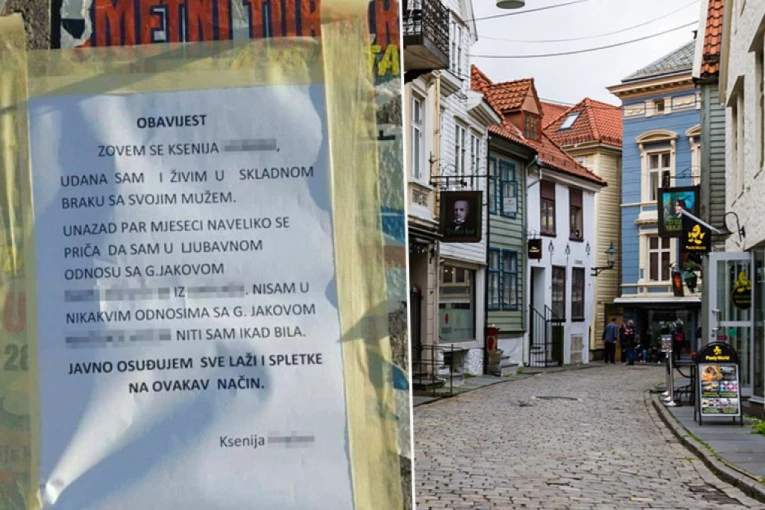 METNI TU
TA
OBAVIJEST
ZOVEM SE KSENIJA ,
UDANA SAM I ŽIVIM U SKLADNOM
BRAKU SA SVOJIM MUŽEM.
UNAZAD PAR MJESECI NAVELIKO SE
PRIČA DA SAM U LJUBAVNOM
ODNOSU SA G.JAKOVOM
IZ . NISAM U
NIKAKVIM ODNOSIMA SA G. JAKOVOM
NITI SAM IKAD BILA.
JAVNO OSUĐUJEM SVE LAŽI I SPLETKE
NA OVAKAV NAČIN.
Ksenija